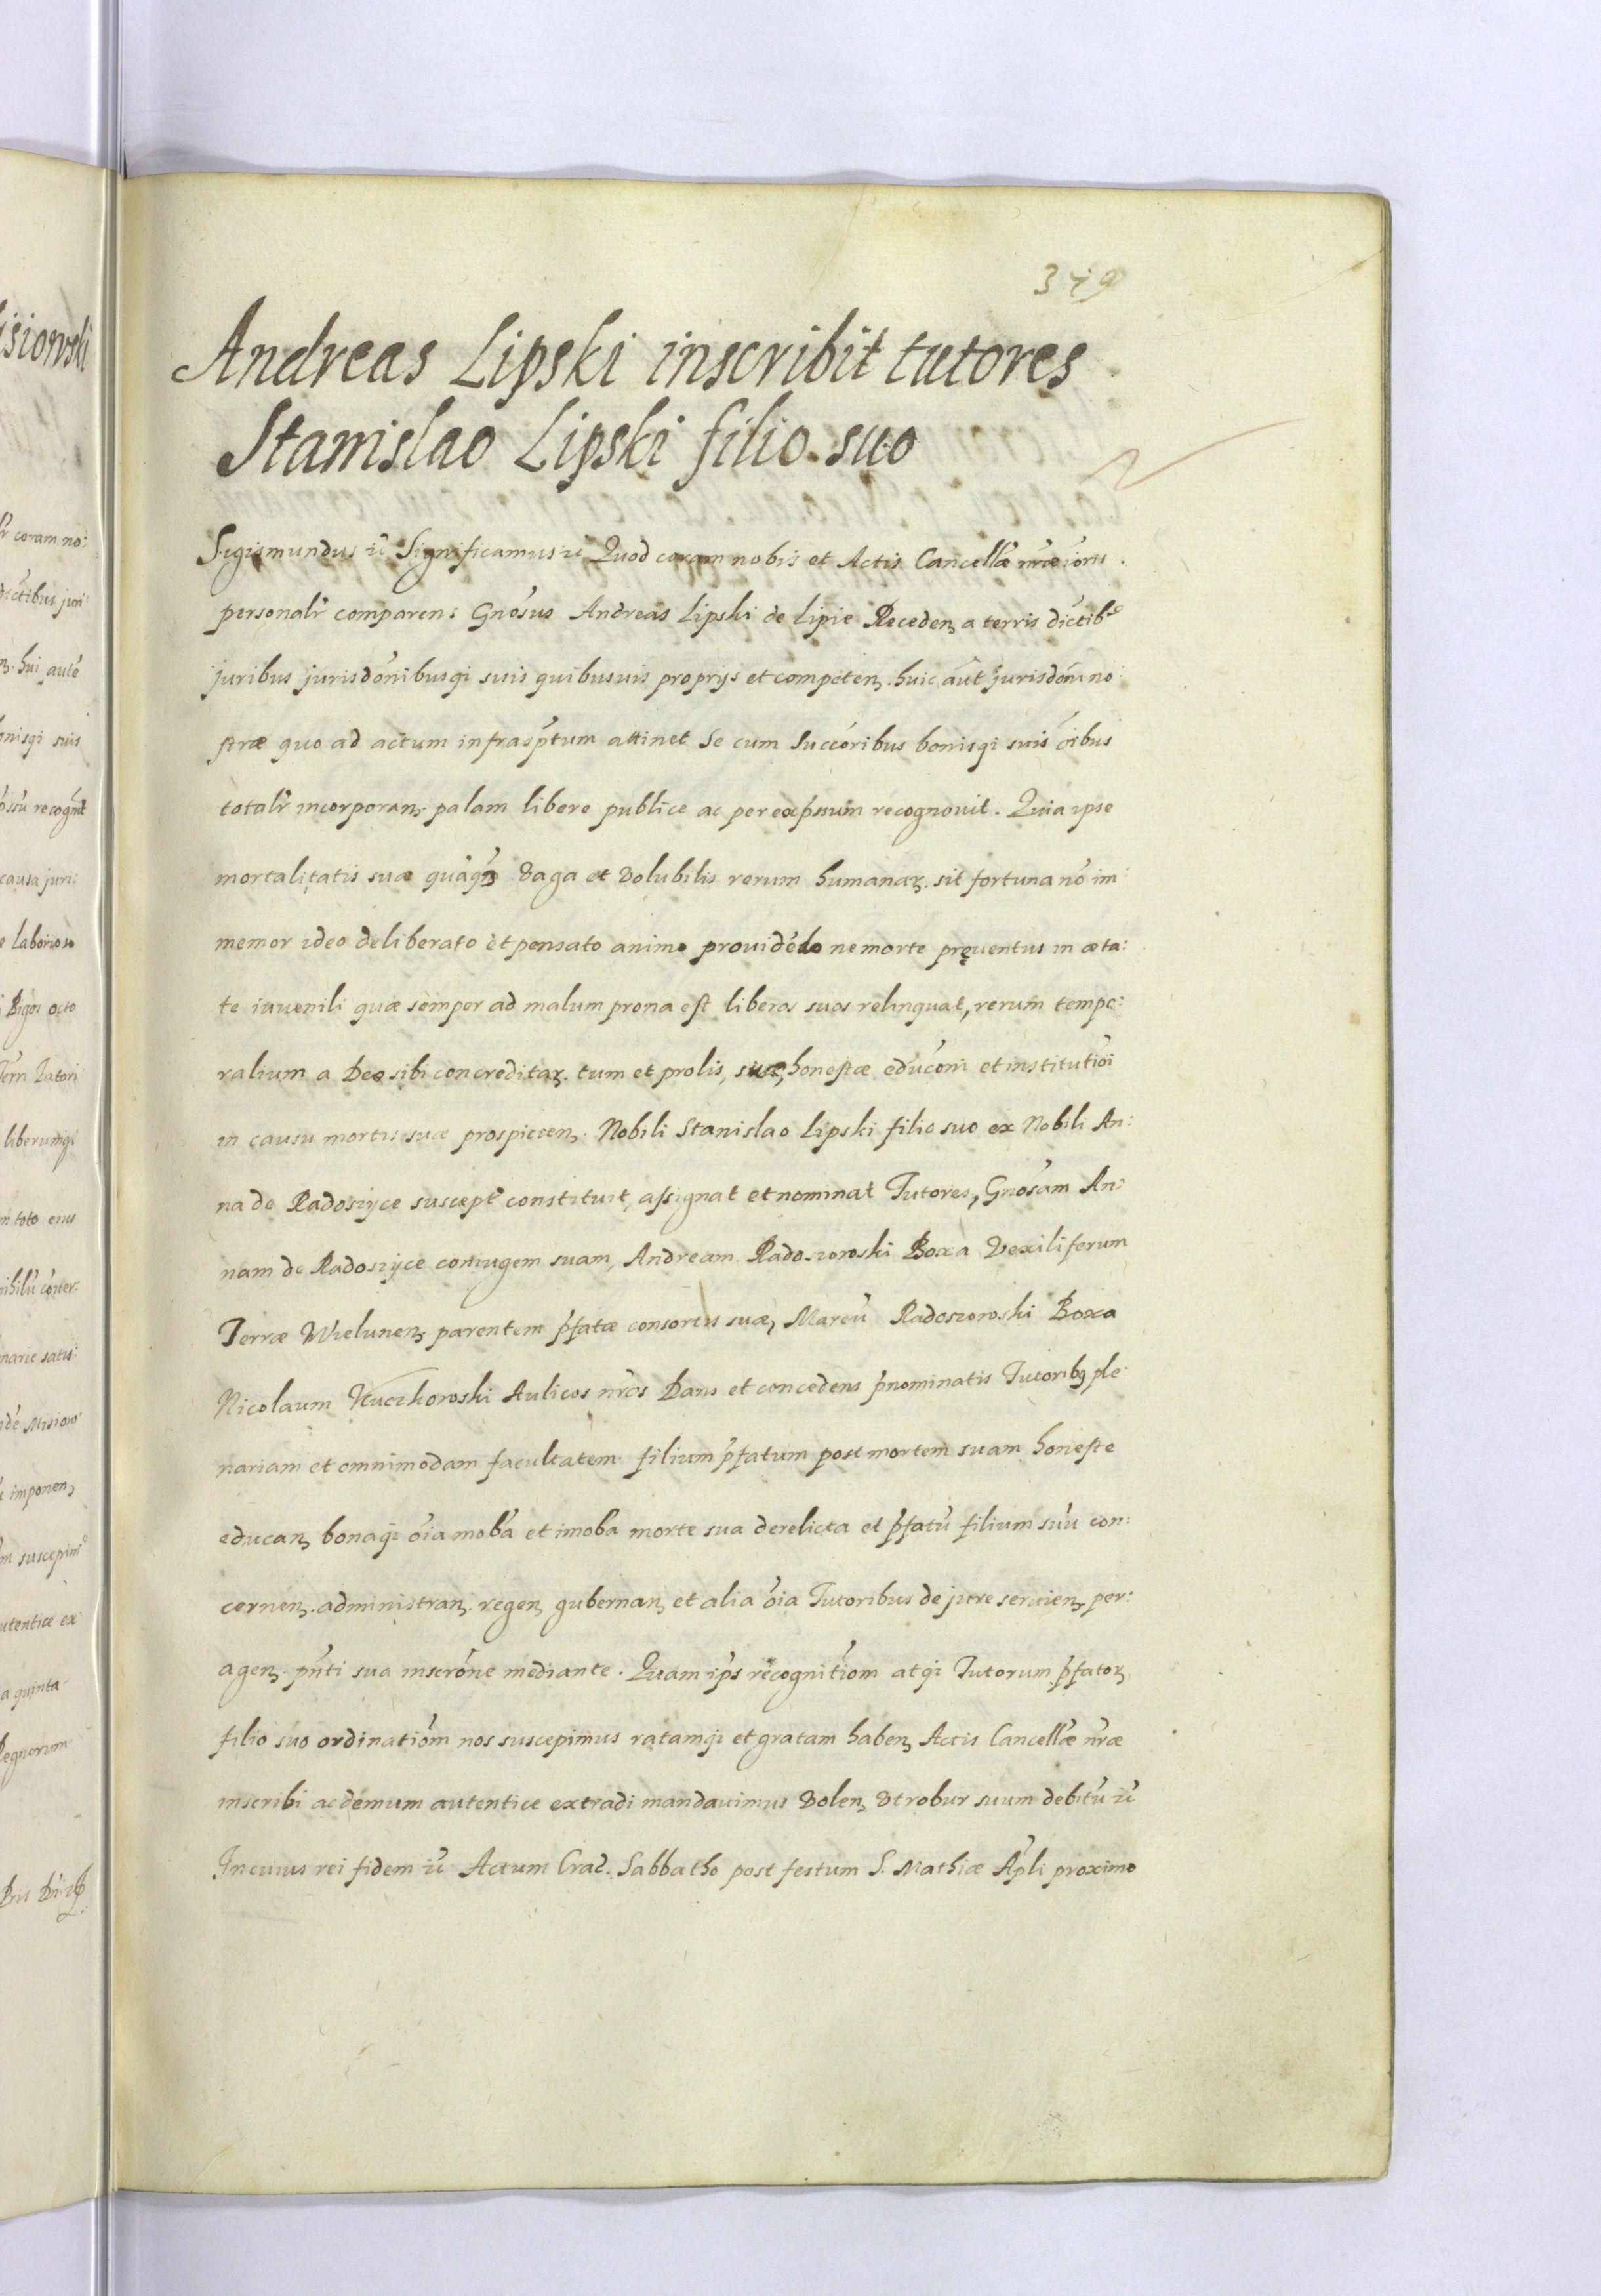 349
Andreas Lipski inscribit tutores
Stanislao Lipski filio suo
Sigismundus &c̃ Significamus &c Quod coram nobis et Actis Cancellæ nr̃æ
personalr̃ comparens Gnõsus Andreas Lipski de Lipie Recedenꝫ a terris dictib9
juribus jurisdõnibusqꝫ suis quibusuis proprijs et competenꝫ. huic aũt jurisdõni no:
stræ quo ad actum infrasp̃tum attinet Se cum Succõribus bonisqꝫ suis õibus
totalr̃ incorporanꝫ. palam libere publice ac per exp̃ssum recognouit. Quia ipse
mortalitatis suæ quãqꝫ vaga et volubilis rerum humanaꝝ. sit fortuna nõ im:
memor ideo deliberato et pensato animo prouidẽdo ne morte pręuentus in æta:
te iuuenili quæ semper ad malum prona est liberos suos relinquat, rerum tempo:
ralium a Deo sibi concreditaꝝ. tum et prolis, suæ, honestæ educõni et institutiõi
in causu mortis suæ prospicienꝫ. Nobili Stanislao Lipski filio suo ex Nobili An:
na de Radoszyce suscept̃ constituit, assignat et nominat Tutores, Gnõsam An:
nam de Radoszyce coniugem suam, Andream Radoszowski Boxa Vexiliferum
Terræ Wielunenꝫ parentem p̃fatæ consortis suæ, Marcũ Radoszowski Boxa
Nicolaum Kuczkowski Aulicos nr̃os Dans et concedens p̃nominatis Tutoribꝫ ple:
nariam et omnimodam facultatem filium p̃fatum post mortem suam honeste
educanꝫ bonaqꝫ õia mobã et imobã morte sua derelicta et p̃fatũ filium suũ con:
cernenꝫ. administranꝫ. regenꝫ gubernanꝫ et alia õia Tutoribus de jure seruienꝫ per:
agenꝫ. pñti sua inscrõne mediante. Quam ip̃s recognitiõm atqꝫ Tutorum p̃fatoꝝ
filio suo ordinatiõm nos suscepimus ratamqꝫ et gratam habenꝫ Actis Cancellæ nr̃æ
inscribi ac demum autentice extradi mandauimus volenꝫ vt robur suum debitũ &c̃
In cuius rei fidem &c̃ Actum Crac̃. Sabbatho post festum S. Mathiæ Ap̃li proximo